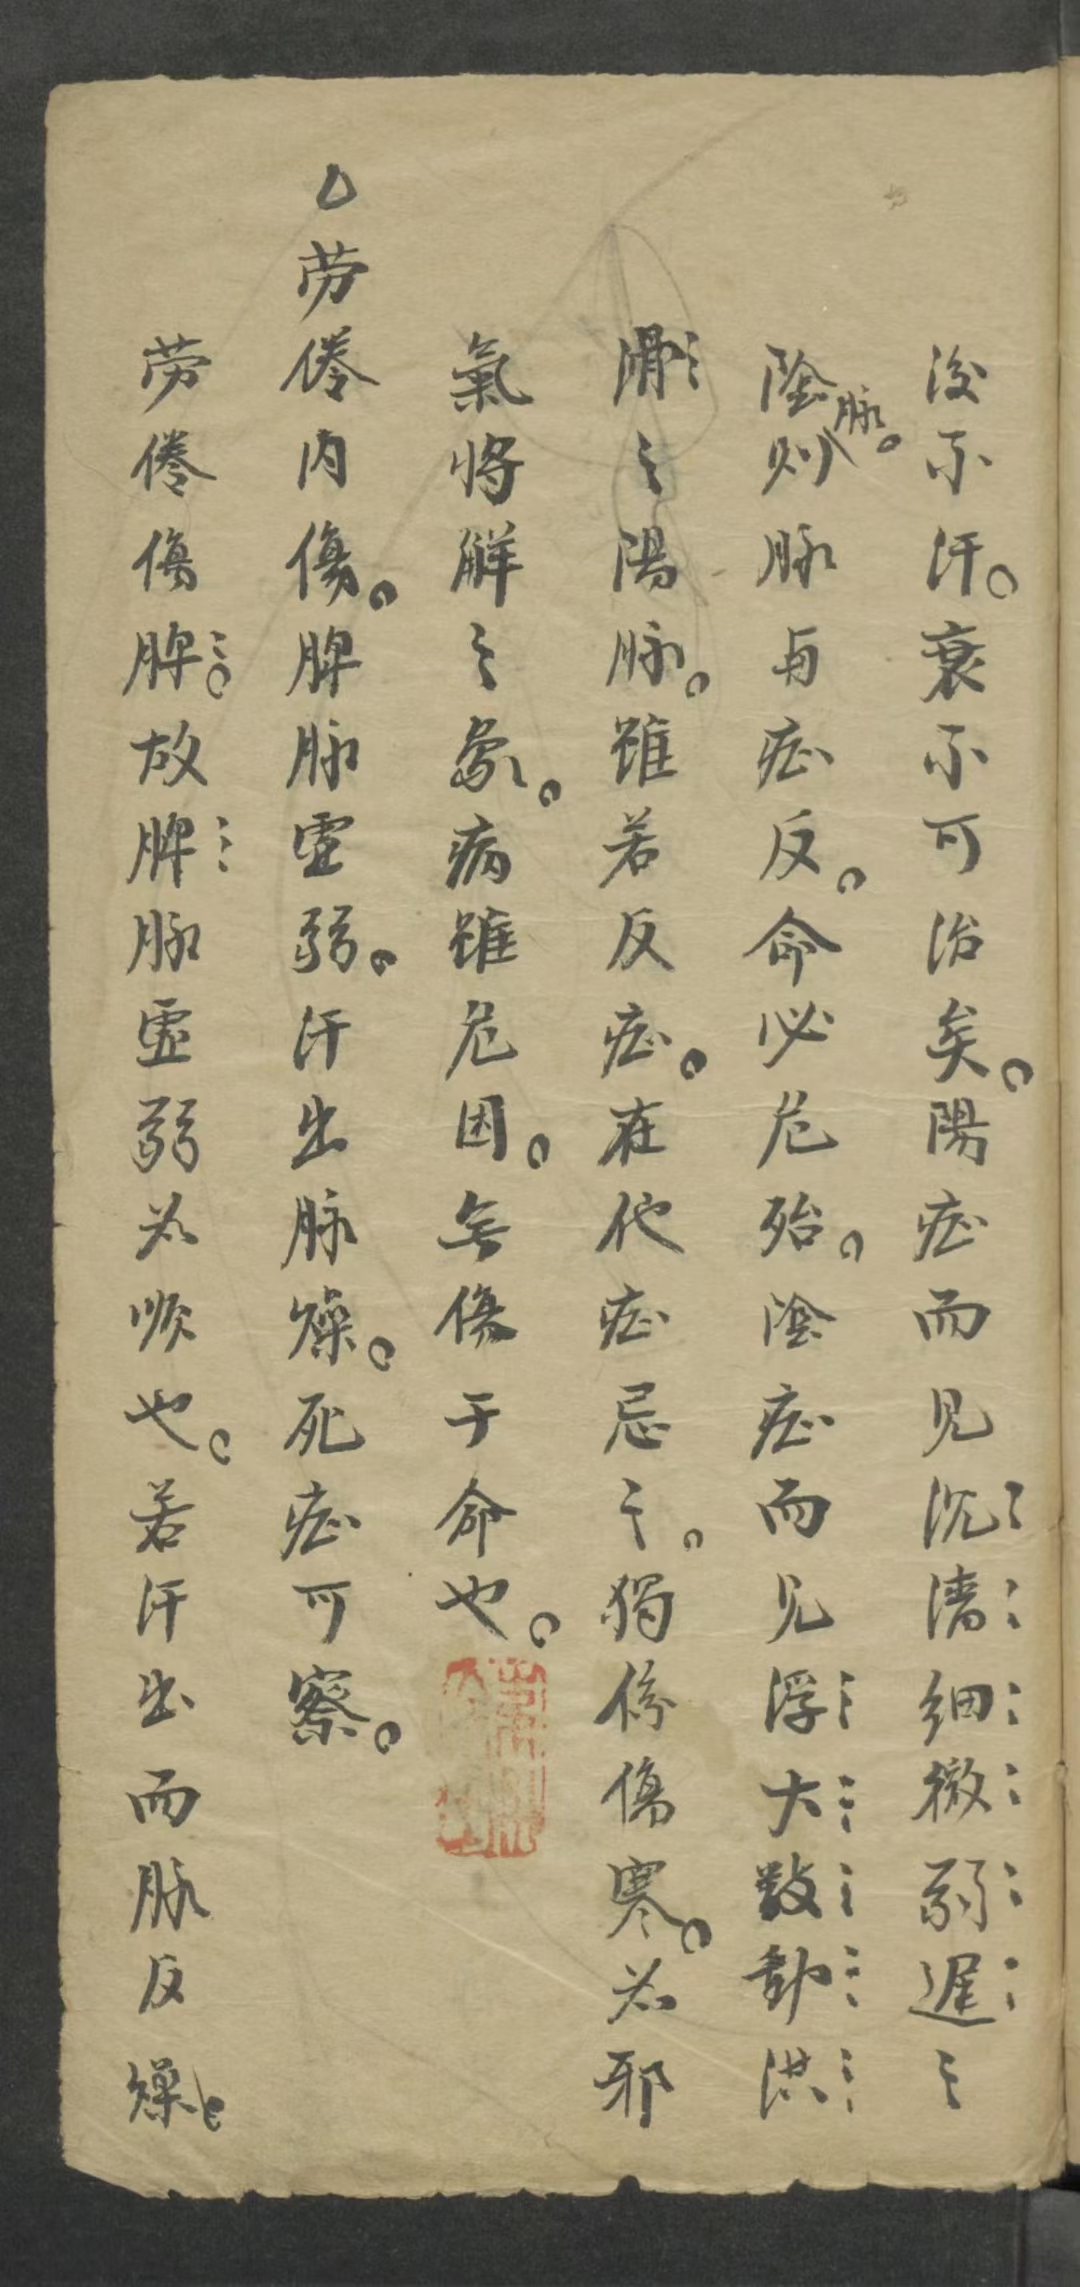 後不汗。衰不可治矣。陽症而見沉濇細微弱遲之
陰脉。則脉与症反。命必危殆。陰症而見浮大数動洪
滑之陽脉。雖若反症。在他症忌之。獨傷寒。為邪
氣將解之象。病雖危困。無傷于命也。
劳倦内傷。脾脉虚弱。汗出脉燥。死症可察。
劳倦傷脾。故脾脉虚弱為順也。若汗出而脉反燥。